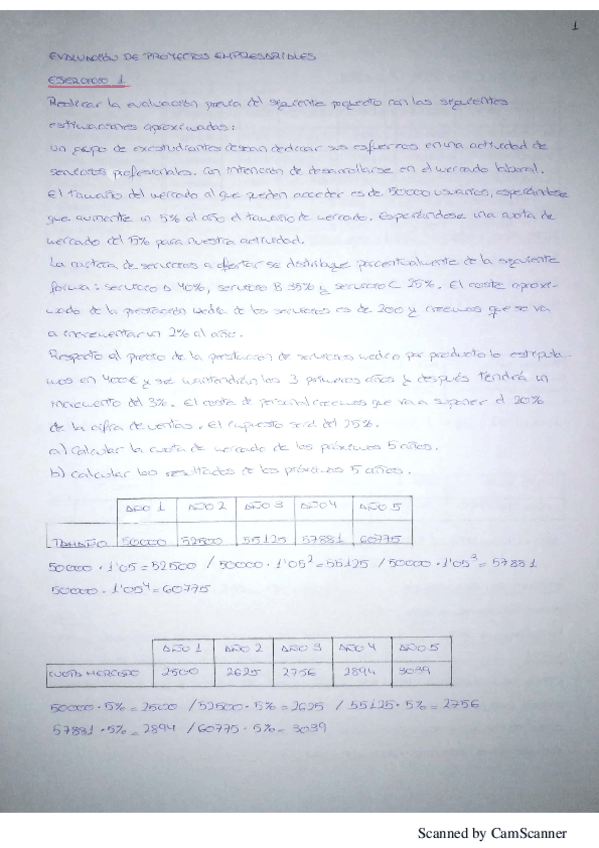 1
EVALUACIÓN DE PROYECTOS EMPRESARIALES
EJERCICIO 1
Realizar la evaluación previa del siguiente proyecto con las siguientes
estimaciones aproximadas:
Un grupo de exestudiantes desean dedicar sus esfuerzos en una actividad de
servicios profesionales. Con intención de desarrollarse en el mercado laboral.
El tamaño del mercado al que pueden acceder es de 50000 usuarios, esperándose
que aumente un 5% al año el tamaño de mercado. Esperándose una cuota de
mercado del 5% para nuestra actividad.
La cartera de servicios a ofertar se distribuye porcentualmente de la siguiente
forma: servicio A 40%, servicio B 35% y servicio C 25%. El coste aproxi-
mado de la prestación media de los servicios es de 200 y creemos que se va
a incrementar un 2% al año.
Respecto al precio de la prestación de servicios medio por producto lo estipula-
mos en 400€ y se mantendrán los 3 primeros años y después tendrá un
incremento del 3%. El coste de personal creemos que va a suponer el 20%
de la cifra de ventas. El impuesto será del 25%.
a) Calcular la cuota de mercado de los próximos 5 años.
b) Calcular los resultados de los próximos 5 años.
AÑO 1 AÑO 2 AÑO 3 AÑO 4 AÑO 5
TAMAÑO 50000 52500 55125 57881 60775
50000 · 1'05 = 52500 / 50000 · 1'05² = 55125 / 50000 · 1'05³ = 57881
50000 · 1'05⁴ = 60775
AÑO 1 AÑO 2 AÑO 3 AÑO 4 AÑO 5
CUOTA MERCADO 2500 2625 2756 2894 3039
50000 · 5% = 2500 / 52500 · 5% = 2625 / 55125 · 5% = 2756
57881 · 5% = 2894 / 60775 · 5% = 3039
Scanned by CamScanner